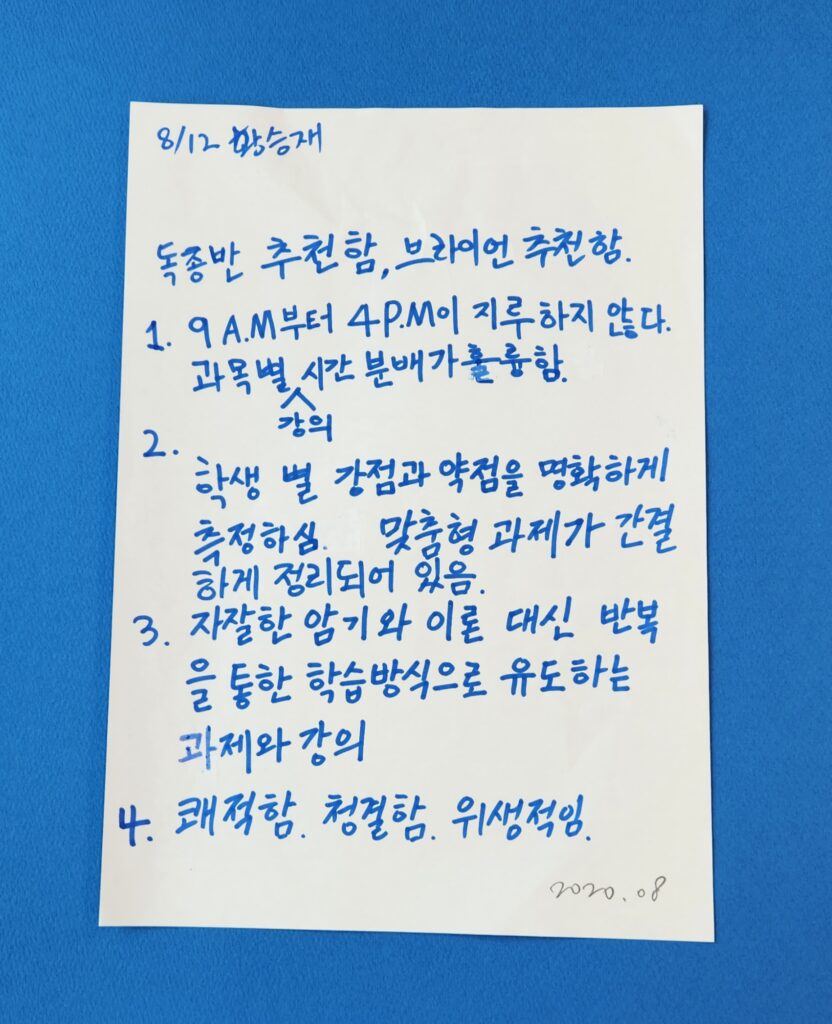 8/12 황승재
독종반 추천함, 브라이언 추천함.
1. 9 A.M부터 4P.M이 지루하지 않다.
과목별 시간 분배가 훌륭함.
강의
2.
학생 별 강점과 약점을 명확하게
측정하심. 맞춤형 과제가 간결
하게 정리되어 있음.
3. 자잘한 암기와 이론 대신 반복
을 통한 학습방식으로 유도하는
과제와 강의
4. 쾌적함. 청결함. 위생적임.
2020.08